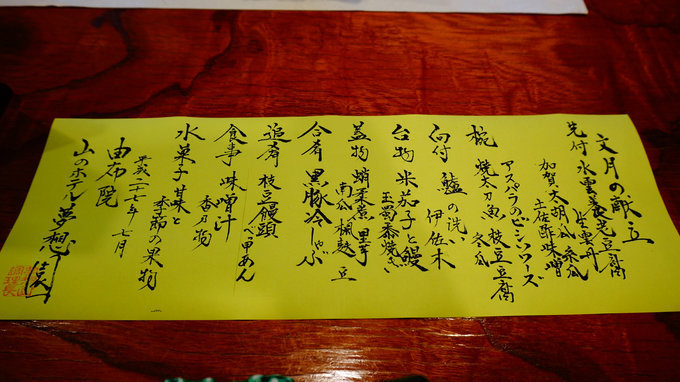 文月の献立
先付 水雲養老豆腐
生雲丹
加賀太胡瓜 糸瓜
土佐酢味噌
アスパラの
椀 焼太刀魚 枝豆豆腐
冬瓜
向付 鱸の洗い 伊佐木
台物 米茄子と鰻
玉蜀黍焼き
蓋物 蛸柔煮 里芋
南瓜 楓麩 豆
合肴 黒豚冷しゃぶ
追肴 枝豆饅頭
べっ甲あん
食事 味噌汁
香乃物
水菓子 甘味と
季節の果物
平成二十七年 七月
由布院
山のホテル 夢想
調理長